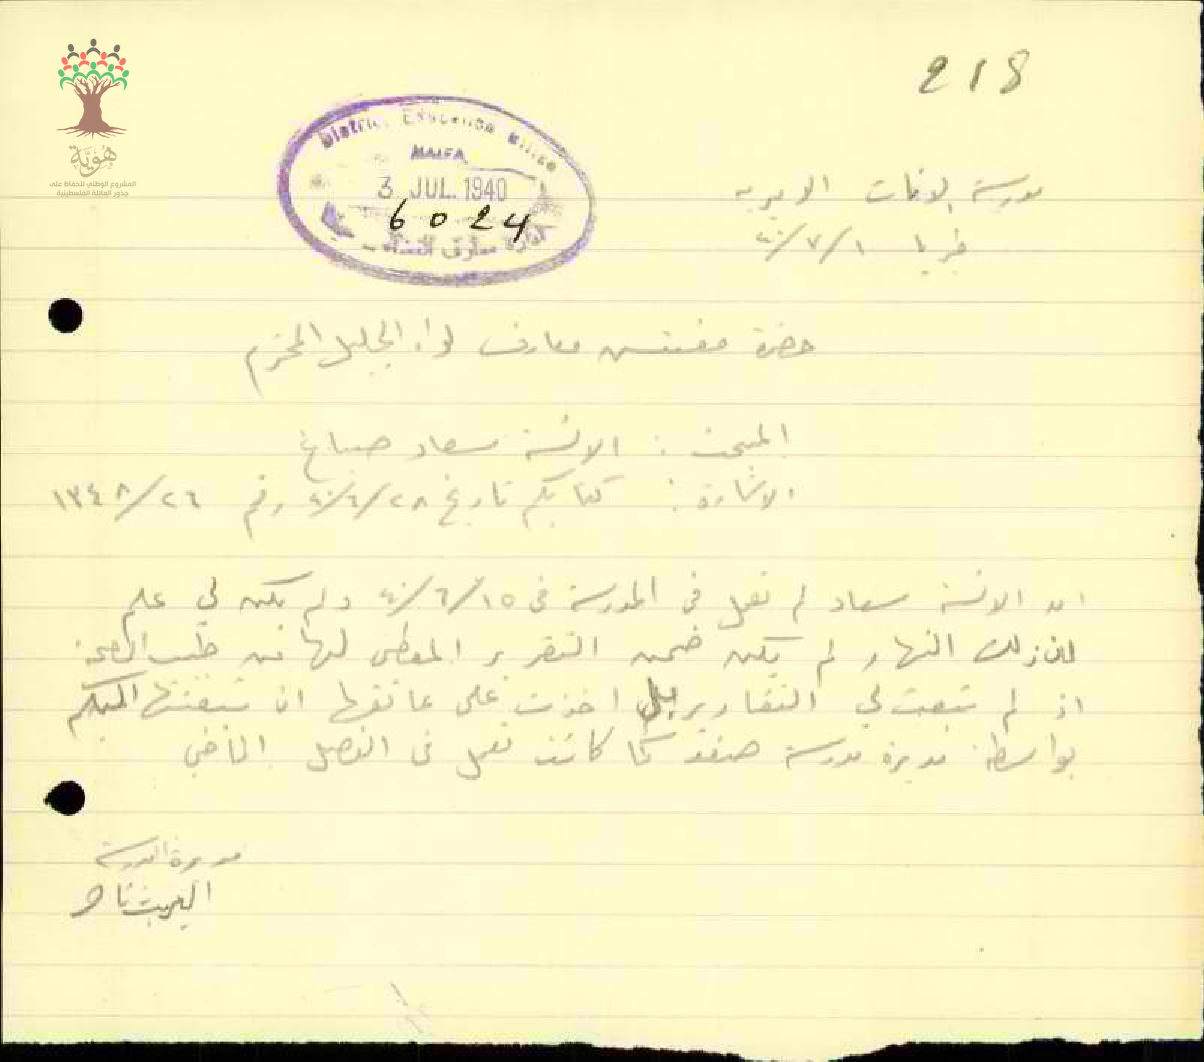 218
هُوِيَّة
المشروع الوطني للحفاظ على
جذور العائلة الفلسطينية
District Education Office
HAIFA
3 JUL. 1940
6024
مدرسة البنات الاميريه
طبريا ١/٧/٤٠
حضرة مفتش معارف لواء الجليل المحترم
المبحث : الانسة سعاد صباغ
الاشارة : كتابكم تاريخ ٢٨/٦/٤٠ رقم ٢٦/١٣٤٨
ان الانسة سعاد لم تعمل في المدرسة في ١٥/٦/٤٠ ولم يكن لي علم
لان ذلك النهار لم يكن ضمن التقرير المعطى لها من طبيب الصحة
اذ لم تبعث لي التقارير بل اخذت على عاتقها ان تبعثها اليكم
بواسطة مديرة مدرسة صفد كما كانت تعمل في الفصل الماضي
مديرة المدرسة